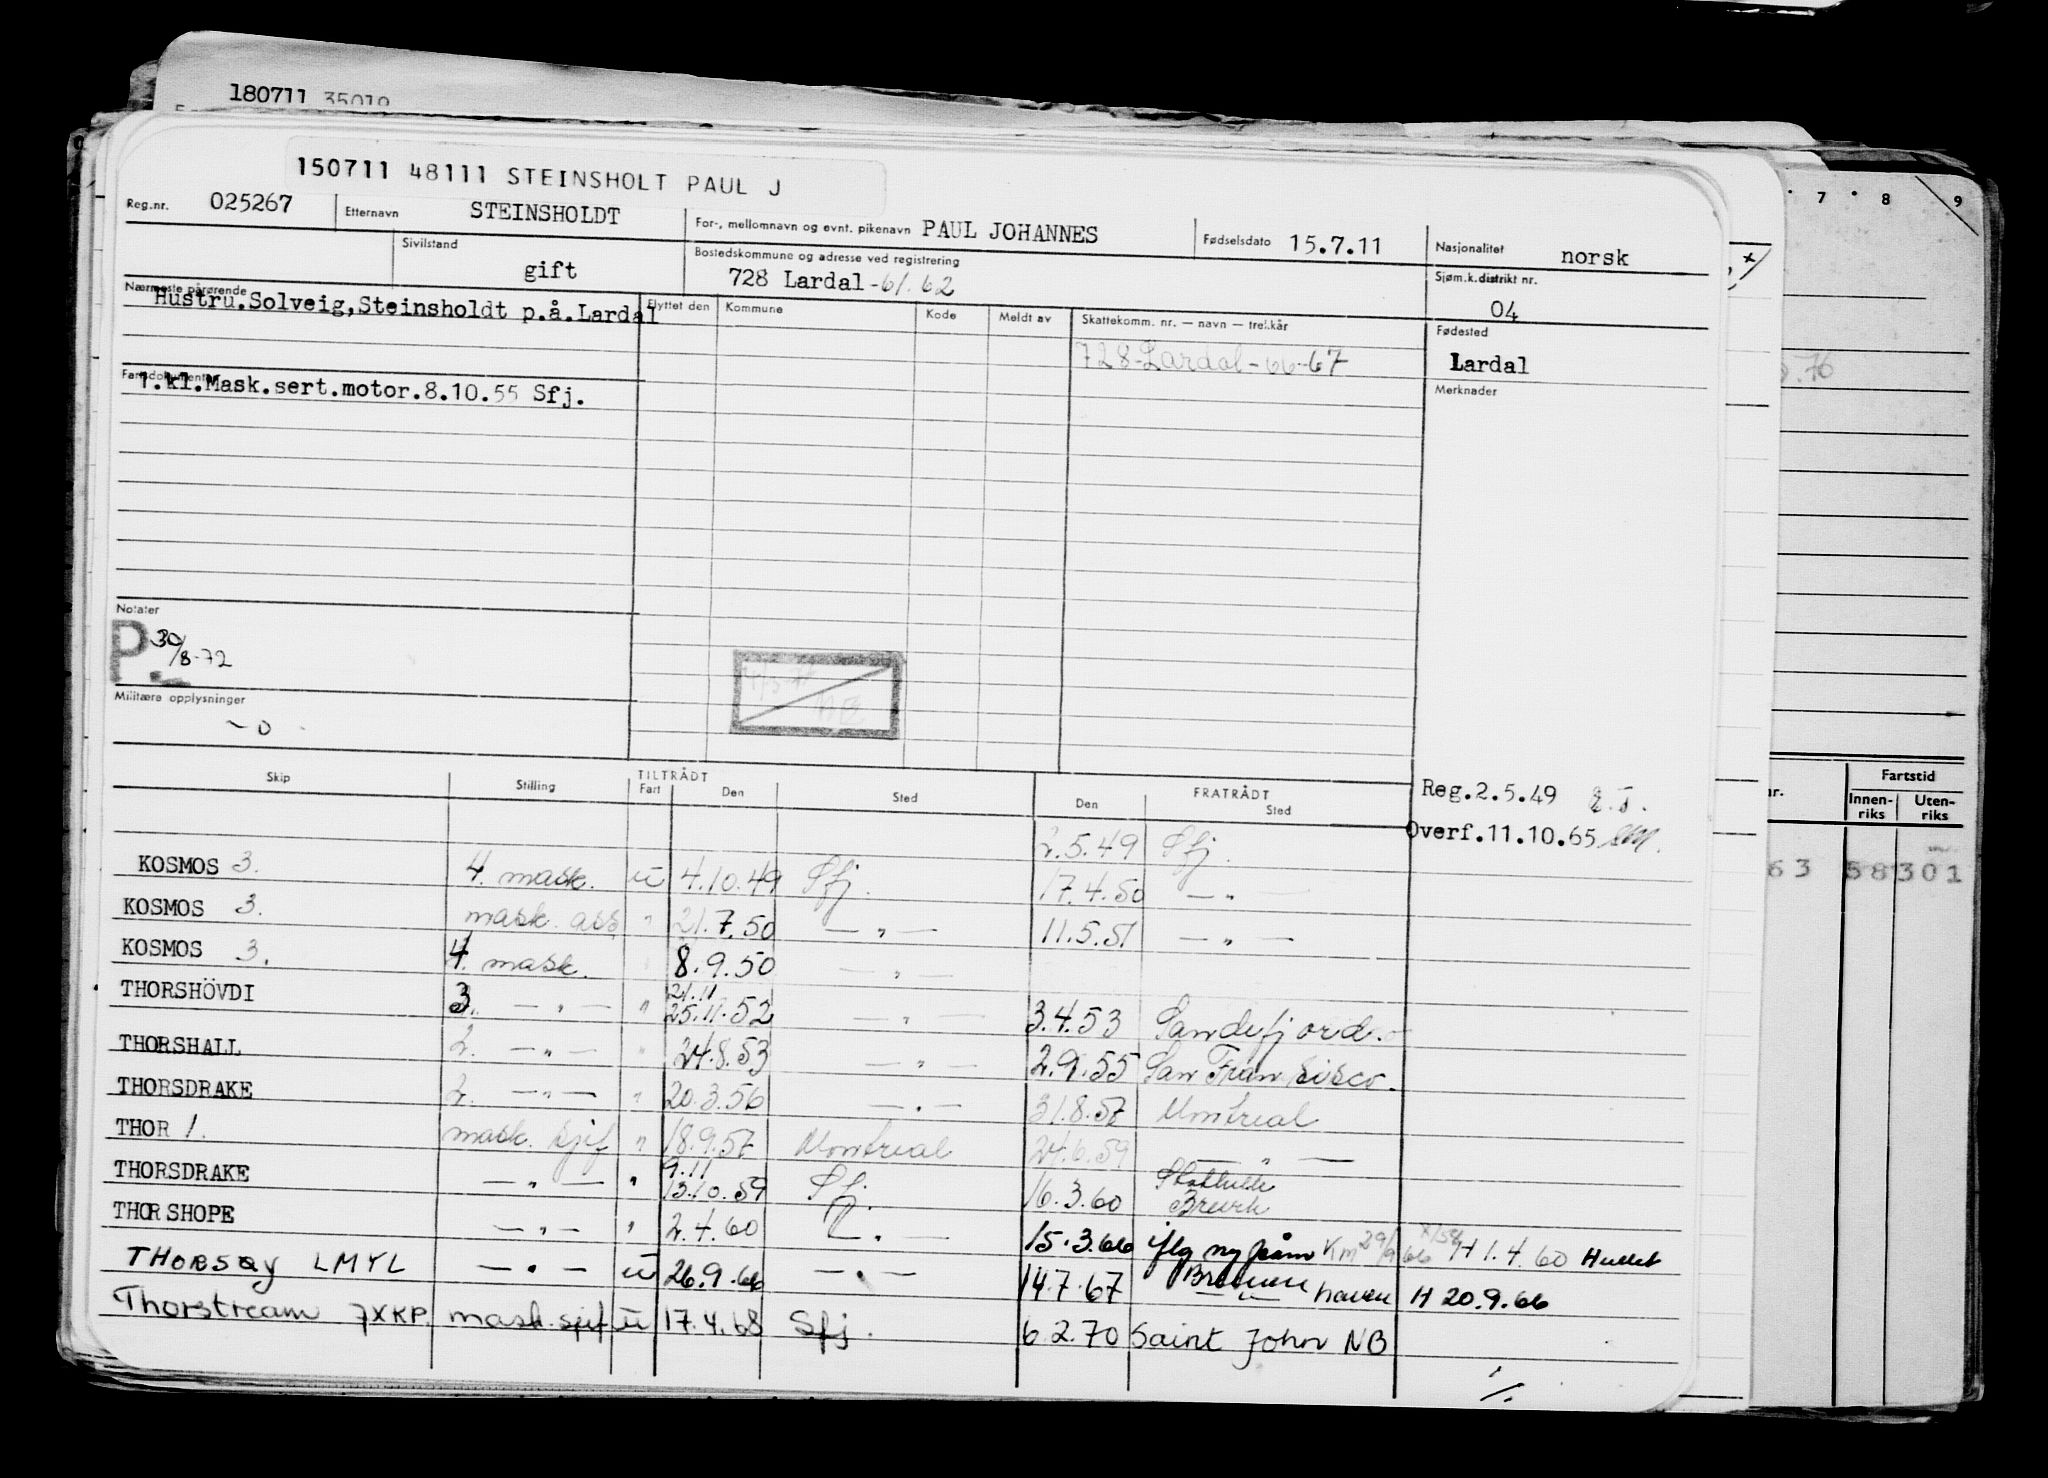 180711 35019
150711 48111 STEINSHOLT PAUL J
Reg.nr. 025267 Etternavn STEINSHOLDT For-, mellomnavn og evnt. pikenavn PAUL JOHANNES Fødselsdato 15.7.11 Nasjonalitet norsk
Sivilstand gift Bostedskommune og adresse ved registrering 728 Lardal -61.62 Sjøm.k.distrikt nr. 04
Nærmeste pårørende Hustru.Solveig,Steinsholdt p.å.Lardal
Flyttet den Kommune Kode Meldt av Skattekomm. nr. — navn — trekkår
728-Lardal-66-67
Fødested Lardal
Fartsdokumenter 1.kl.Mask.sert.motor.8.10.55 Sfj.
Merknader
Notater
P. 30/8-72
Militære opplysninger
- 0
Reg.2.5.49
Overf.11.10.65
Skip Stilling TILTRÅDT Fart Den Sted FRATRÅDT Den Sted
2.5.49 Sfj.
KOSMOS 3. 4. mask. u 4.10.49 Sfj. 17.4.50 — " —
KOSMOS 3. mask. ass " 21.7.50 — " — 11.5.51 — " —
KOSMOS 3. 4. mask. 8.9.50 — " —
THORSHÖVDI 3. — " — " 21.11 25.11.52 — " — 3.4.53 Sandefjord.
THORSHALL 2. — " — " 24.8.53 — " — 2.9.55 San Fransisco.
THORSDRAKE 2. — " — " 20.3.56 — " — 31.8.57 Montreal
THOR 1. mask. sjef " 18.9.57 Montreal 24.6.59 — " —
THORSDRAKE — " — " 9.11 13.10.59 Sfj. 16.3.60 Brevik
THORSHOPE — " — " 2.4.60 — " — 15.3.66 iflg ny Km 29/9 66 H 1.4.60
THORSØY LMYL — " — u 26.9.66 — " — 14.7.67 Bremerhaven H 20.9.66
Thorstream JXKP. mask. sjef u 17.4.68 Sfj. 6.2.70 Saint John NB
7 8 9
Fartstid
Innenriks Utenriks
63 58301